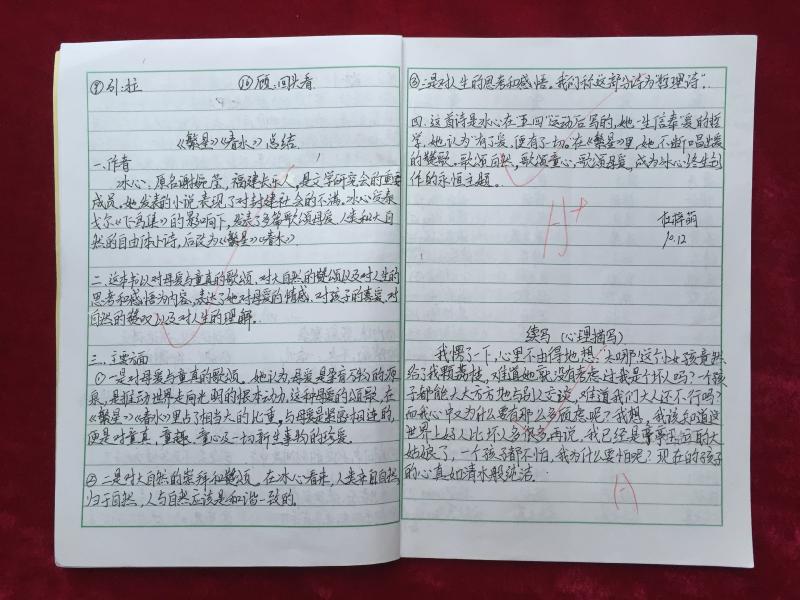 ⑨引:拉 ⑩顾:回头看
《繁星》《春水》总结.
一.作者
冰心:原名谢婉莹,福建长乐人,是文学研究会的重要
成员.她发表的小说表现了对封建社会的不满.冰心受泰
戈尔《飞鸟集》的影响下,发表了多篇歌颂母爱、人类和大自
然的自由体小诗,后改为《繁星》《春水》
二.这本书以对母爱与童真的歌颂.对大自然的赞颂以及对人生的
思考和感悟为内容,表达了她对母爱的情感.对孩子的喜爱.对
自然的赞叹以及对人生的理解。
三.主要方面
①一是对母爱与童真的歌颂。她认为,母爱是孕育万物的源
泉,是推动世界走向光明的根本动力,这种母爱的颂歌,在
《繁星》《春水》里占了相当大的比重。与母爱是紧密相连的,
便是对童真,童趣、童心及一切新生事物的珍爱.
②二是对大自然的崇拜和赞颂。在冰心看来,人类来自自然,
归于自然,人与自然应该是和谐一致的。
③三是对人生的思考和感悟。我们称这部分诗为"哲理诗"。
四.这首诗是冰心在"五四"运动后写的,她一生信奉"爱的哲
学",她认为"有了爱,便有了一切。"在《繁星》里,她不断唱出爱
的赞歌.歌颂自然,歌颂童心,歌颂母爱,成为冰心终生创
作的永恒主题。
10.12
续写(心理描写)
我愣了一下,心里不由得地想:天哪!这个小女孩竟然
给了我颗 ,难道她就没有考虑过我是个坏人吗?一个孩
子都能大大方方地与别人交谈,难道我们大人还不行吗?
而我心中又为什么要有那么多顾虑呢?我想,我该知道这
世界上好人比坏人多很多,再说,我已经是亭亭玉立的大
姑娘了,一个孩子都不怕,我为什么要怕呢?现在的孩子
的心真如清水般纯洁.